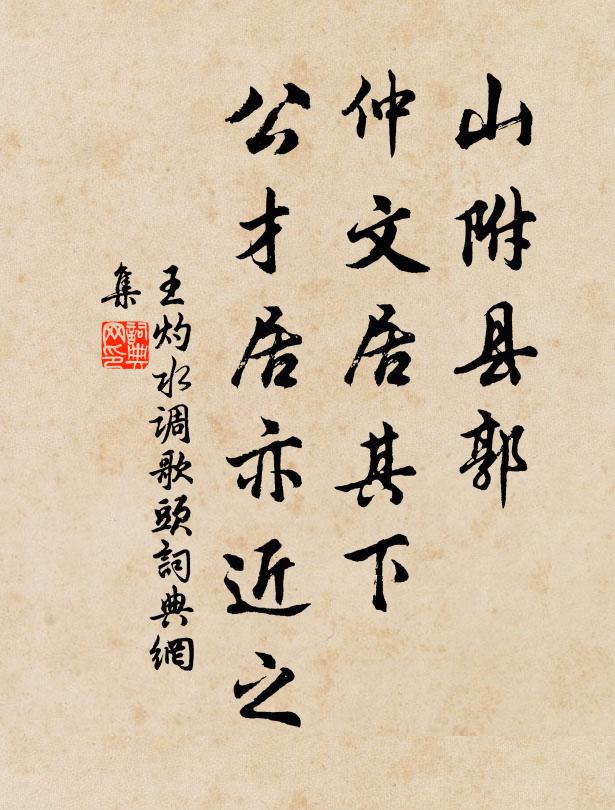 山附县郭
仲文居其下
公才居亦近之
王灼水调歌頭詞典網
集
詞典网印